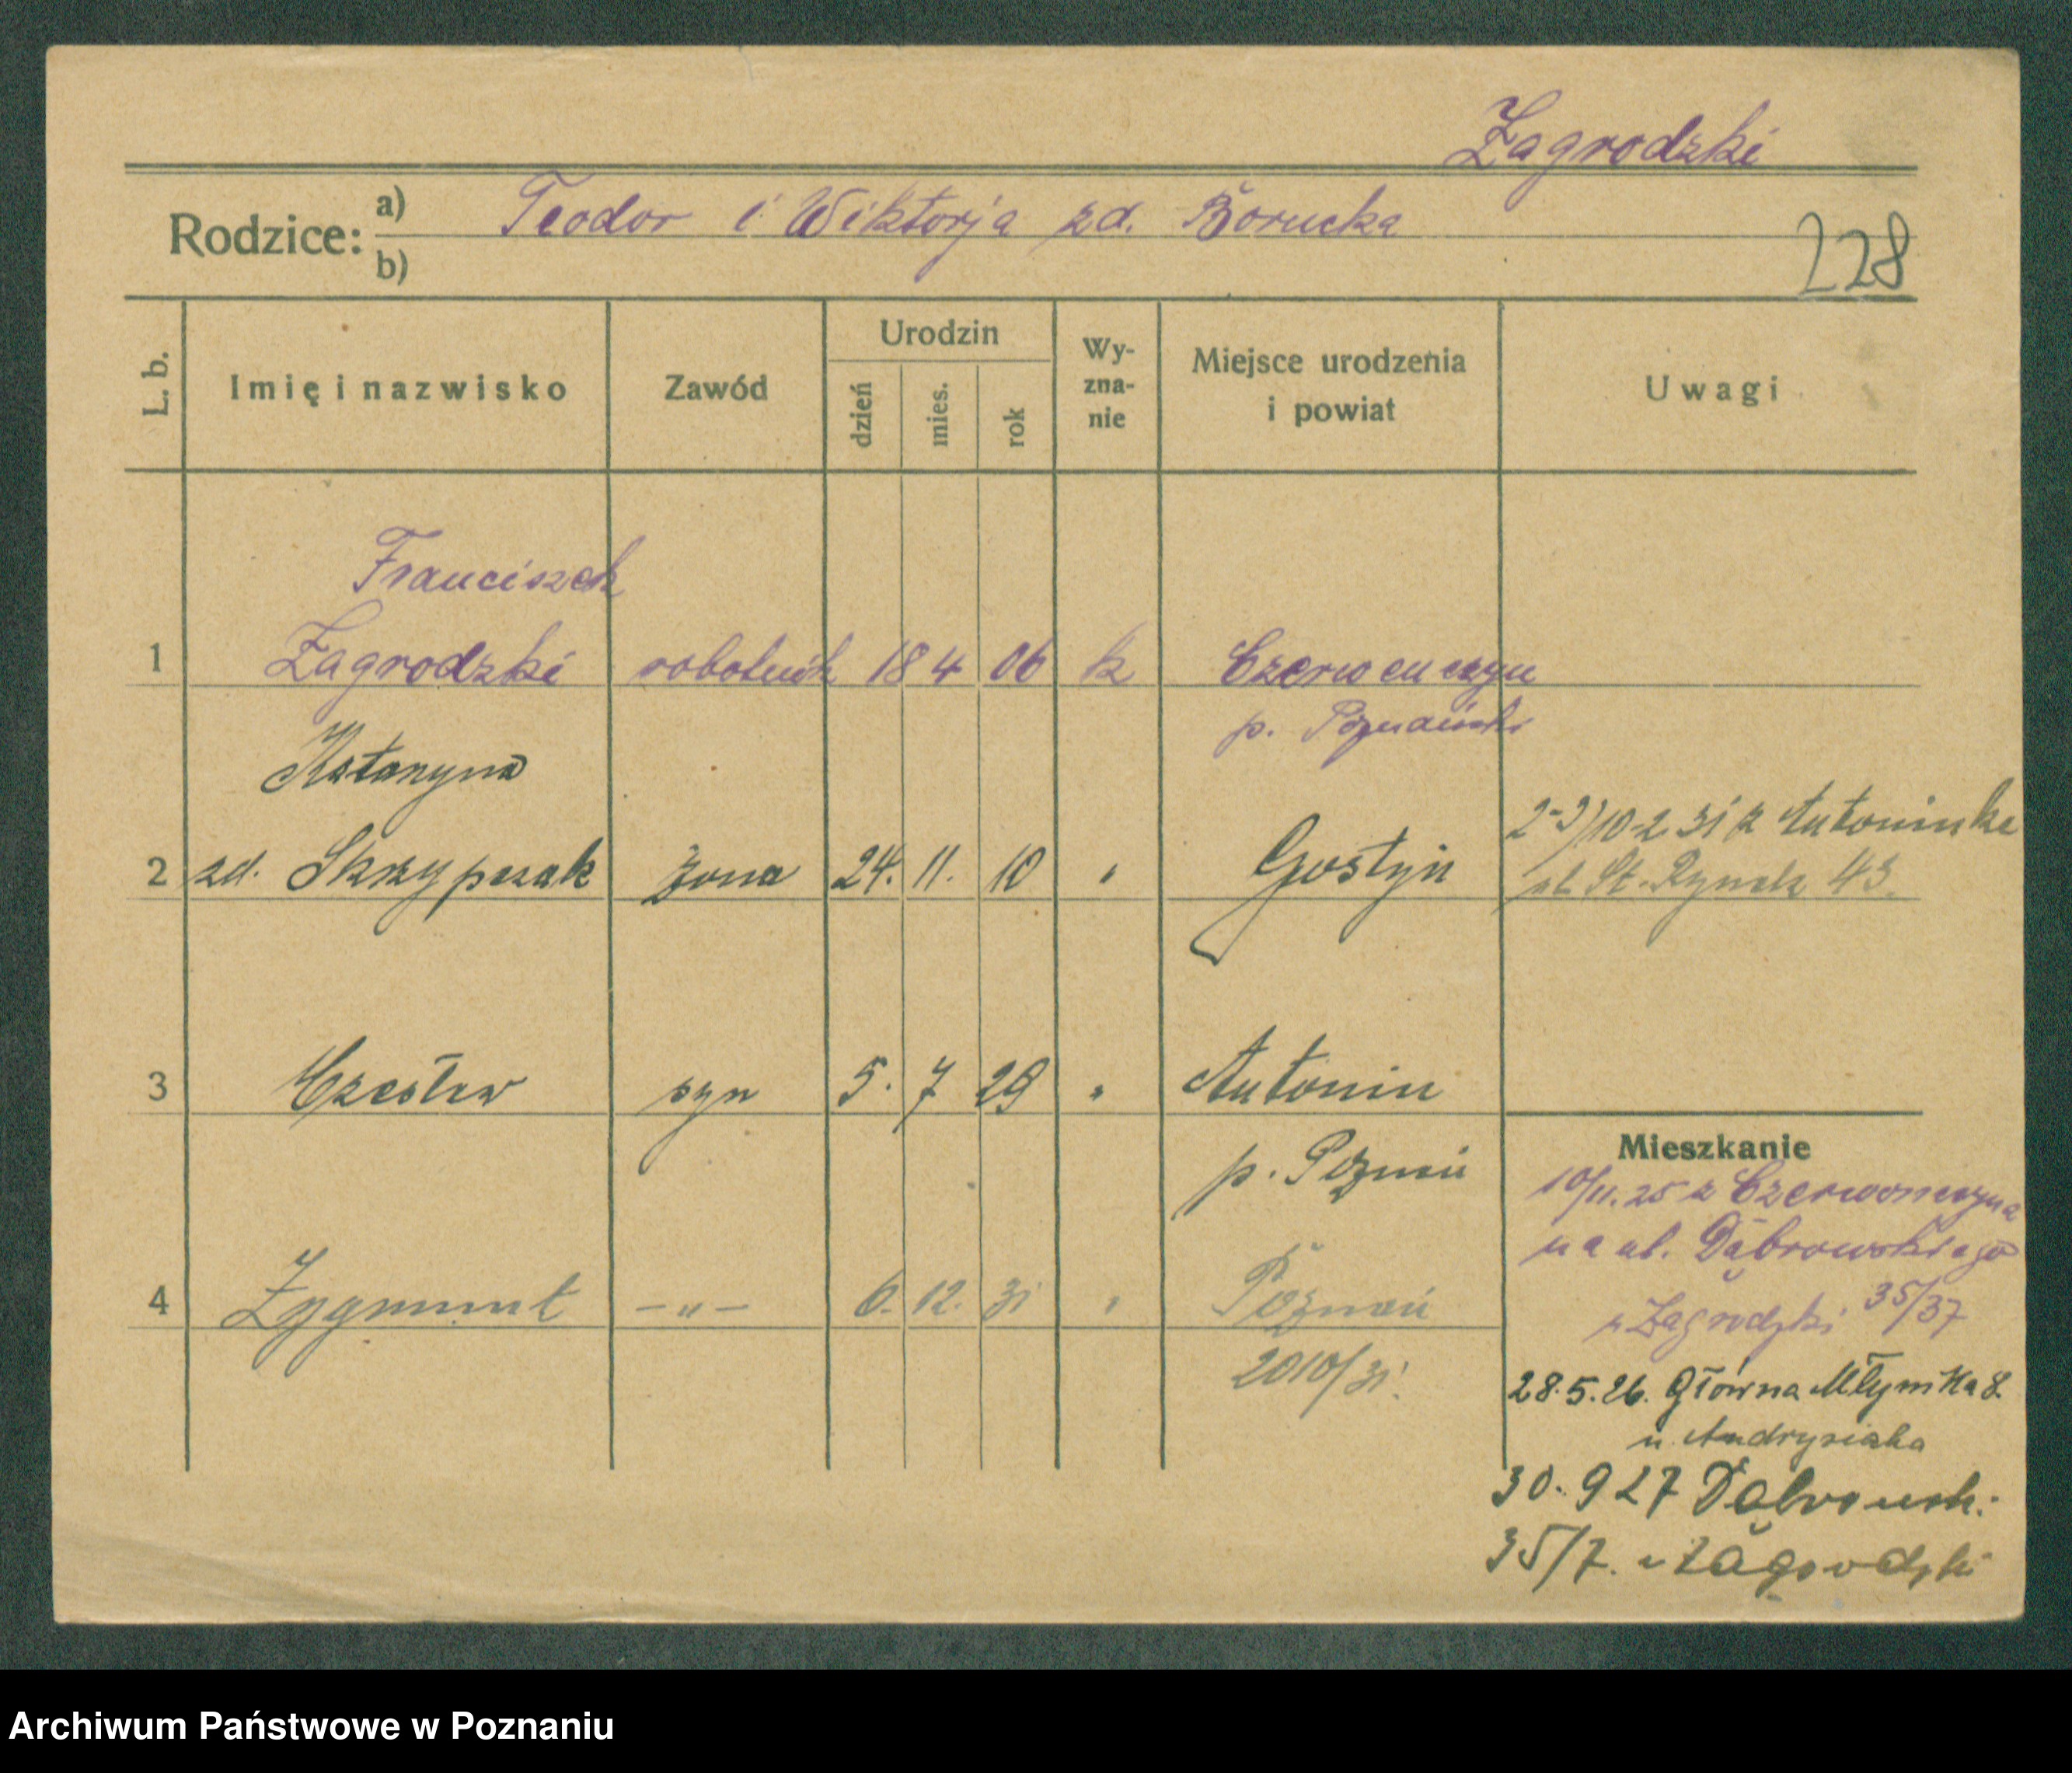 Zagrodzki
Rodzice: a) Teodor i Wiktorja zd. Borucka
b)
228
L. b.
Imię i nazwisko
Zawód
Urodzin
dzień
mies.
rok
Wy-
zna-
nie
Miejsce urodzenia
i powiat
Uwagi
Franciszek
1 Zagrodzki robotnik 18 4 06 k Czerwonczyn
p. Poznański
Katarzyna
2 zd. Skrzypczak żona 24. 11. 10 " Gostyń
2-3)10-2 31 z Antoninka
ul. St. Rynek 43.
3 Czesław syn 5. 7 29 " Antonin
p. Poznań
4 Zygmunt -"- 6. 12. 31 " Poznań
2010/31.
Mieszkanie
10/11.25 z Czerwonczyna
na ul. Dąbrowskiego
u Zagrodzki 35/37
28.5.26. Główna Młyńska 8.
u Andrysiaka
30.9 27 Dąbrowsk.
35/7. u Zagrodzki
Archiwum Państwowe w Poznaniu